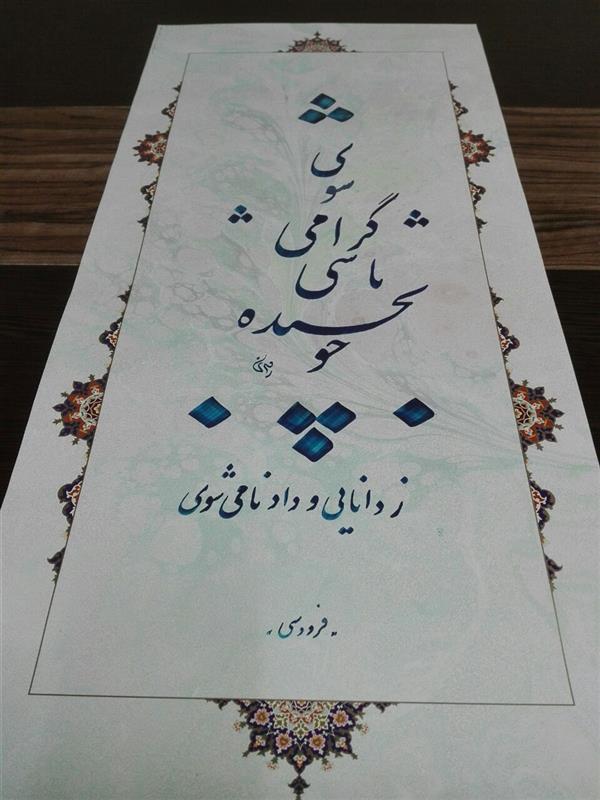 چو بخشنده باشی گرامی شوی
ز دانایی و داد نامی شوی
فردوسی